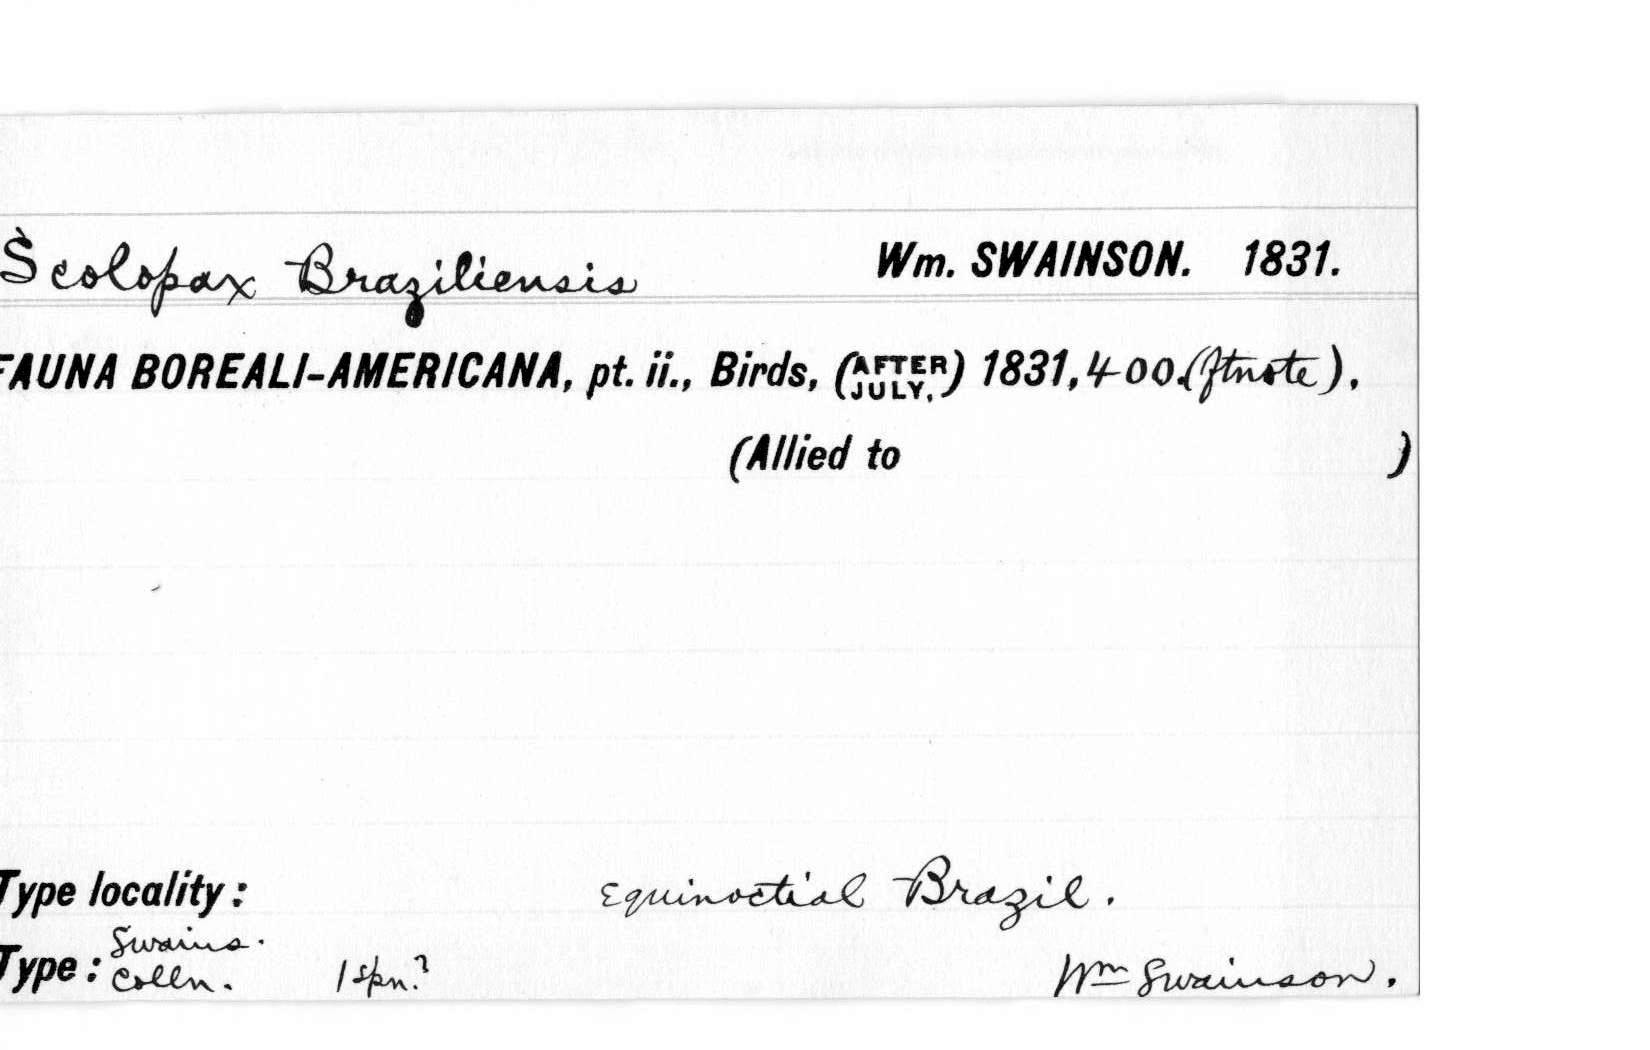 Scolopax Braziliensis Wm. SWAINSON. 1831.
FAUNA BOREALI-AMERICANA, pt. ii., Birds, (AFTER JULY,) 1831, 400.(ftnote).
(Allied to )
Type locality: Equinoctial Brazil.
Type: Swains. Colln. 1 spn.? Wm Swainson.